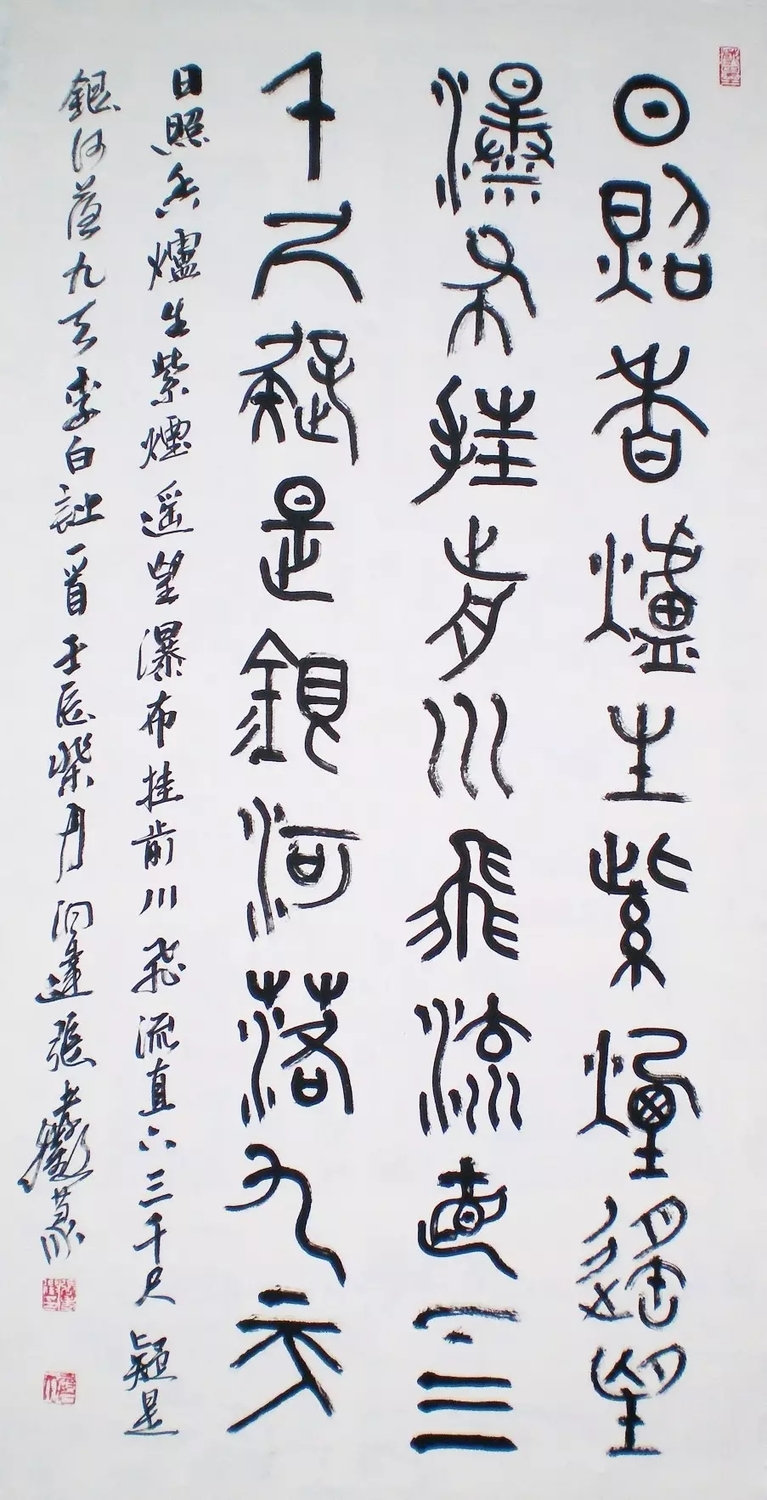 日照香爐生紫煙遥望
瀑布挂前川飛流直下三
千尺疑是銀河落九天
日照香爐生紫煙遥望瀑布挂前川飛流直下三千尺疑是
銀河落九天李白詩一首壬辰柒月問達張孝徽篆